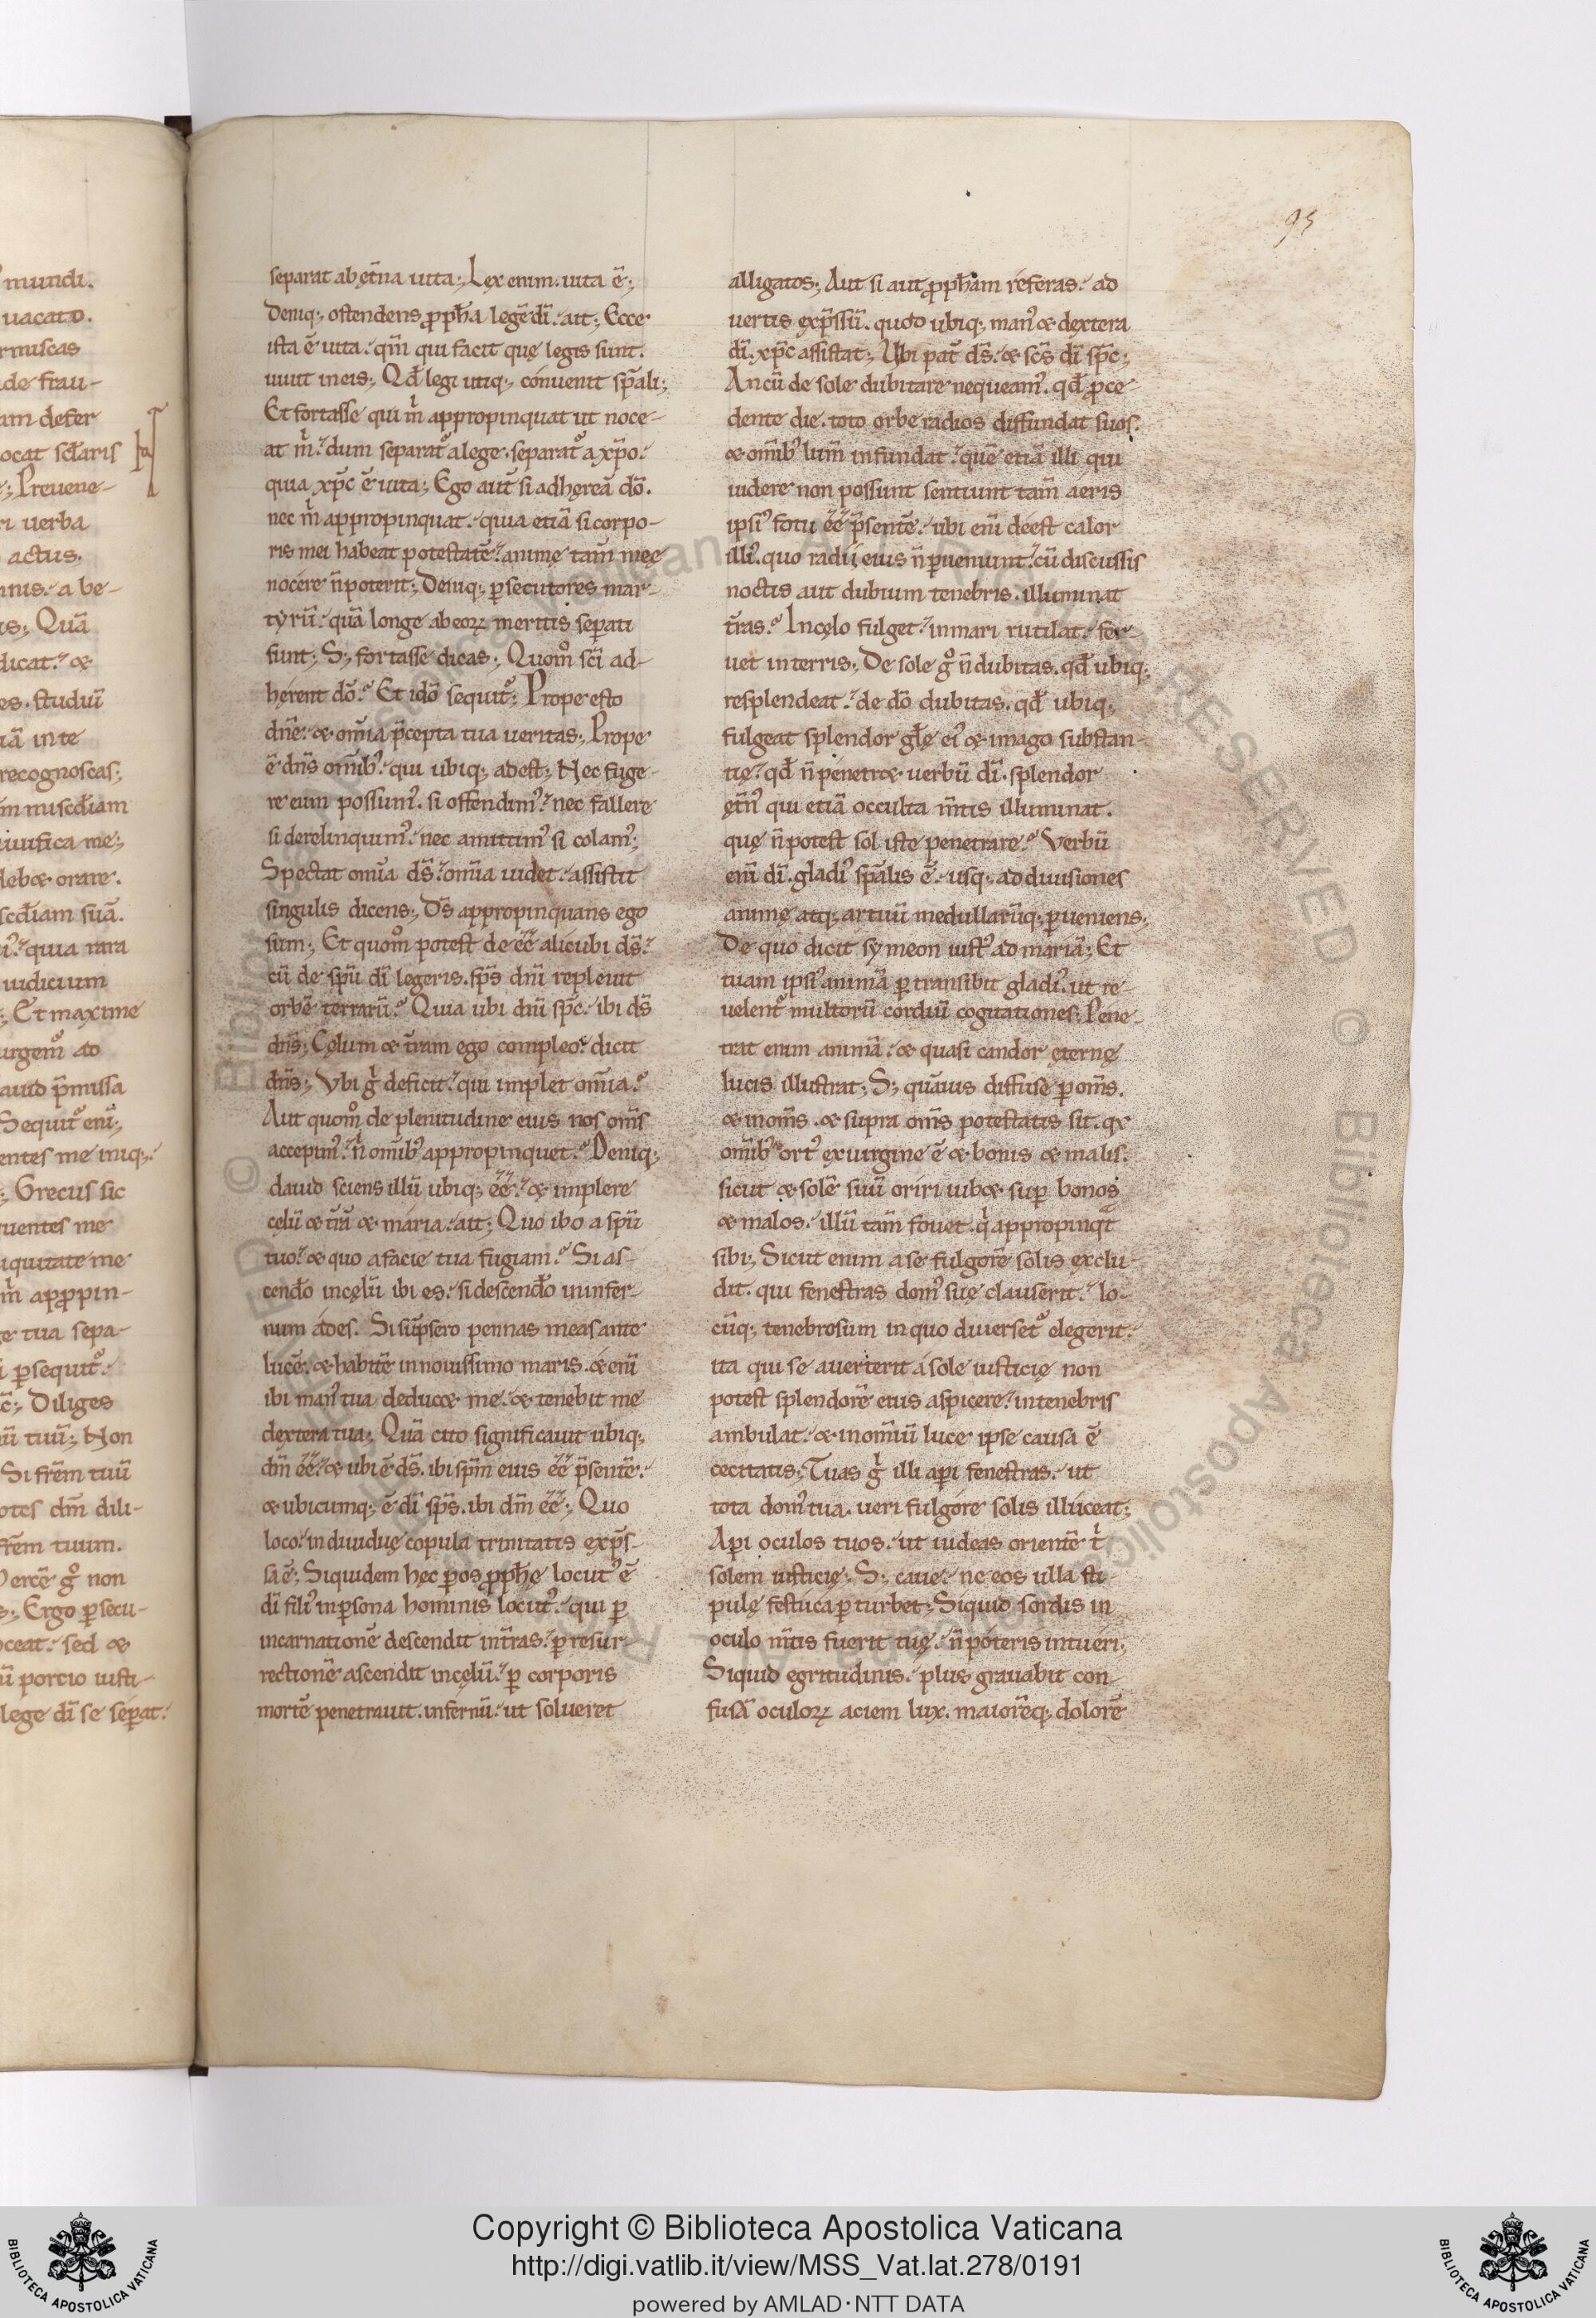 mundi.
uacato.
rmiscas
de frau-
am defer
ocat scd̄aris
; Preuene-
ri uerba
actus.
nnis. a be-
us; Quā
dicat. &
es. studui
iā in te
recognoscas;
m miscd̄iam
iuifica me;
leb& orare.
scd̄iam suā.
quia rara
iudicium
; Et maxime
urgem᷑ ad
auid p̄missa
Sequit᷑ eni;
entes me iniq;
; Grecus sic
quentes me
iquitate me
m̄ appropin-
ge tua sepa-
ꝑsequit᷑.
c̄; Diliges
ū tuū; Non
Si frēm tuū
otes dm̄ dili-
frēm tuum.
Dercē gͦ non
s; Ergo ꝑsecu-
oceat. sed &
ū portio iusti-
lege dī se seꝑat.
95
separat ab ęt̄na uita; Lex enim. uita ē;
Deniq; ostendens ꝓph̄a legē dī. ait; Ecce
ista ē uita. qm̄ qui facit quę legis sunt.
uiuit in eis; Qd̄ legi utiq; conuenit sp̄ali;
Et fortasse qui m̄ appropinquat ut noce-
at m̄. dum separat᷑ a lege. separat᷑ a xp̄o.
quia xp̄c ē uita; Ego aut̄ si adhęreā dō.
nec m̄ appropinquat. quia etiā si corpo-
ris mei habeat potestatē. animę tam̄ meę
nocere n̄ poterit; Deniq; ꝑsecutores mar-
tyrū. quā longe ab eoꝝ meritis seꝑati
sunt; S; fortasse dicas; Quom̊ sci ad-
herent dō. Et idō sequit᷑; Prope esto
dn̄e. & om̄ia p̄cepta tua ueritas; Prope
ē dn̄s om̄ib᷒. qui ubiq; adest; Nec fuge-
re eum possum᷒. si offendim᷒. nec fallere
si derelinquim᷒. nec amittim᷒ si colam᷒;
Spectat om̄ia ds̄. om̄ia uidet. assistit
singulis dicens; Ds̄ appropinquans ego
sum; Et quom̊ potest de eē̄ alicubi ds̄.
cū de spū dī legeris. sps̄ dn̄i repleuit
orbē terrarū. Quia ubi dn̄i sp̄c. ibi ds̄
dn̄s; Cęlum & t̄ram ego compleo. dicit
dn̄s; Vbi gͥ deficit. qui implet om̄ia.
Aut quom̊ de plenitudine eius nos om̄s
accepim᷒. n̄ om̄ib᷒ appropinquet. Deniq;
dauid sciens illū ubiq; eē̄. & implere
cęlū & t̄rā & maria. ait; Quo ibo a spū
tuo. & quo a facie tua fugiam. Si as-
cendo in cęlū ibi es. si descendo in infer-
num ades. Si sūpsero pennas meas ante
lucē. & habitē in nouissimo maris. & eni
ibi man᷒ tua deduc& me. & tenebit me
dextera tua; Quā cito significauit ubiq;
dm̄ eē̄. & ubi ē ds̄. ibi spm̄ eius eē̄ p̄sentē.
& ubicumq; ē dī sps̄. ibi dm̄ eē̄; Quo
loco. indiuiduę copula trinitatis exp̄s-
sa ē; Siquidem hęc ꝑ os ꝓph̄ę locut᷒ ē
dī fili᷒ in ꝑsona hominis locut᷒. qui ꝑ
incarnationē descendit in t̄ras. ꝑ resur-
rectionē ascendit in cęlū. ꝑ corporis
mortē penetrauit. infernū. ut solueret
alligatos; Aut si aut ꝓph̄am referas. ad
uertis exp̄ssū. quod ubiq; man᷒ & dextera
dī. xp̄c assistat; Vbi pat̄ ds̄. & scs̄ dī sp̄c;
An cū de sole dubitare nequeam᷒. qd̄ ꝓce-
dente die. toto orbe radios diffundat suos.
& om̄ib᷒ lum̄ infundat. quē etiā illi qui
uidere non possunt sentiunt tam̄ aeris
ipsi᷒ fotu eē̄ p̄sentē. ubi eni deest calor
illi᷒. quo radii eius n̄ ꝑueniunt. cū discussis
noctis aut dubium tenebris. illuminat
t̄ras. In cęlo fulget. in mari rutilat. fer-
uet in terris; De sole gͦ n̄ dubitas. qd̄ ubiq;
resplendeat. de dō dubitas. qd̄ ubiq;
fulgeat splendor gl̄ę ei᷒ & imago substan-
tię. qd̄ n̄ penetr& uerbū dī. splendor
ęt̄n᷒ qui etiā occulta m̄tis illuminat.
quę n̄ potest sol iste penetrare. Verbū
eni dī. gladi᷒ sp̄alis ē. usq; ad diuisiones
animę atq; artuū medullarūq; ꝑueniens;
De quo dicit symeon iust᷒ ad mariā; Et
tuam ipsi᷒ animā ꝑtransibit gladi᷒. ut re-
uelent᷑ multorū cordiū cogitationes; Pene-
trat enim animā. & quasi candor ęternę
lucis illustrat; S; quāuis diffuse ꝑ om̄s.
& in om̄s. & supra om̄s potestatis sit. q&
om̄ib᷒ ort᷒ ex uirgine ē & bonis & malis.
sicut & solē suū oriri iub& suꝑ bonos
& malos. illū tam̄ fouet. qͥ appropinqt̄
sibi; Sicut enim a se fulgorē solis exclu-
dit. qui fenestras dom᷒ suę clauserit. lo-
cūq; tenebrosum in quo diuerset᷑ elegerit.
ita qui se auerterit a sole iusticię non
potest splendorē eius aspicere. in tenebris
ambulat. & in om̄iū luce ipse causa ē
cecitatis; Tuas gͥ illi aꝑi fenestras. ut
tota dom᷒ tua. ueri fulgore solis illuceat;
Aꝑi oculos tuos. ut uideas orientē tͥ
solem iusticię; S; caue. ne eos ulla sti-
pulę festuca ꝑturbet; Siquid sordis in
oculo m̄tis fuerit tuę. n̄ poteris intueri;
Siquid egritudinis. plus grauabit con-
fusā oculoꝝ aciem lux. maiorēq; dolorē
© Biblioteca Apostolica Vaticana
Copyright © Biblioteca Apostolica Vaticana
http://digi.vatlib.it/view/MSS_Vat.lat.278/0191
powered by AMLAD·NTT DATA
BIBLIOTECA APOSTOLICA VATICANA
BIBLIOTECA APOSTOLICA VATICANA